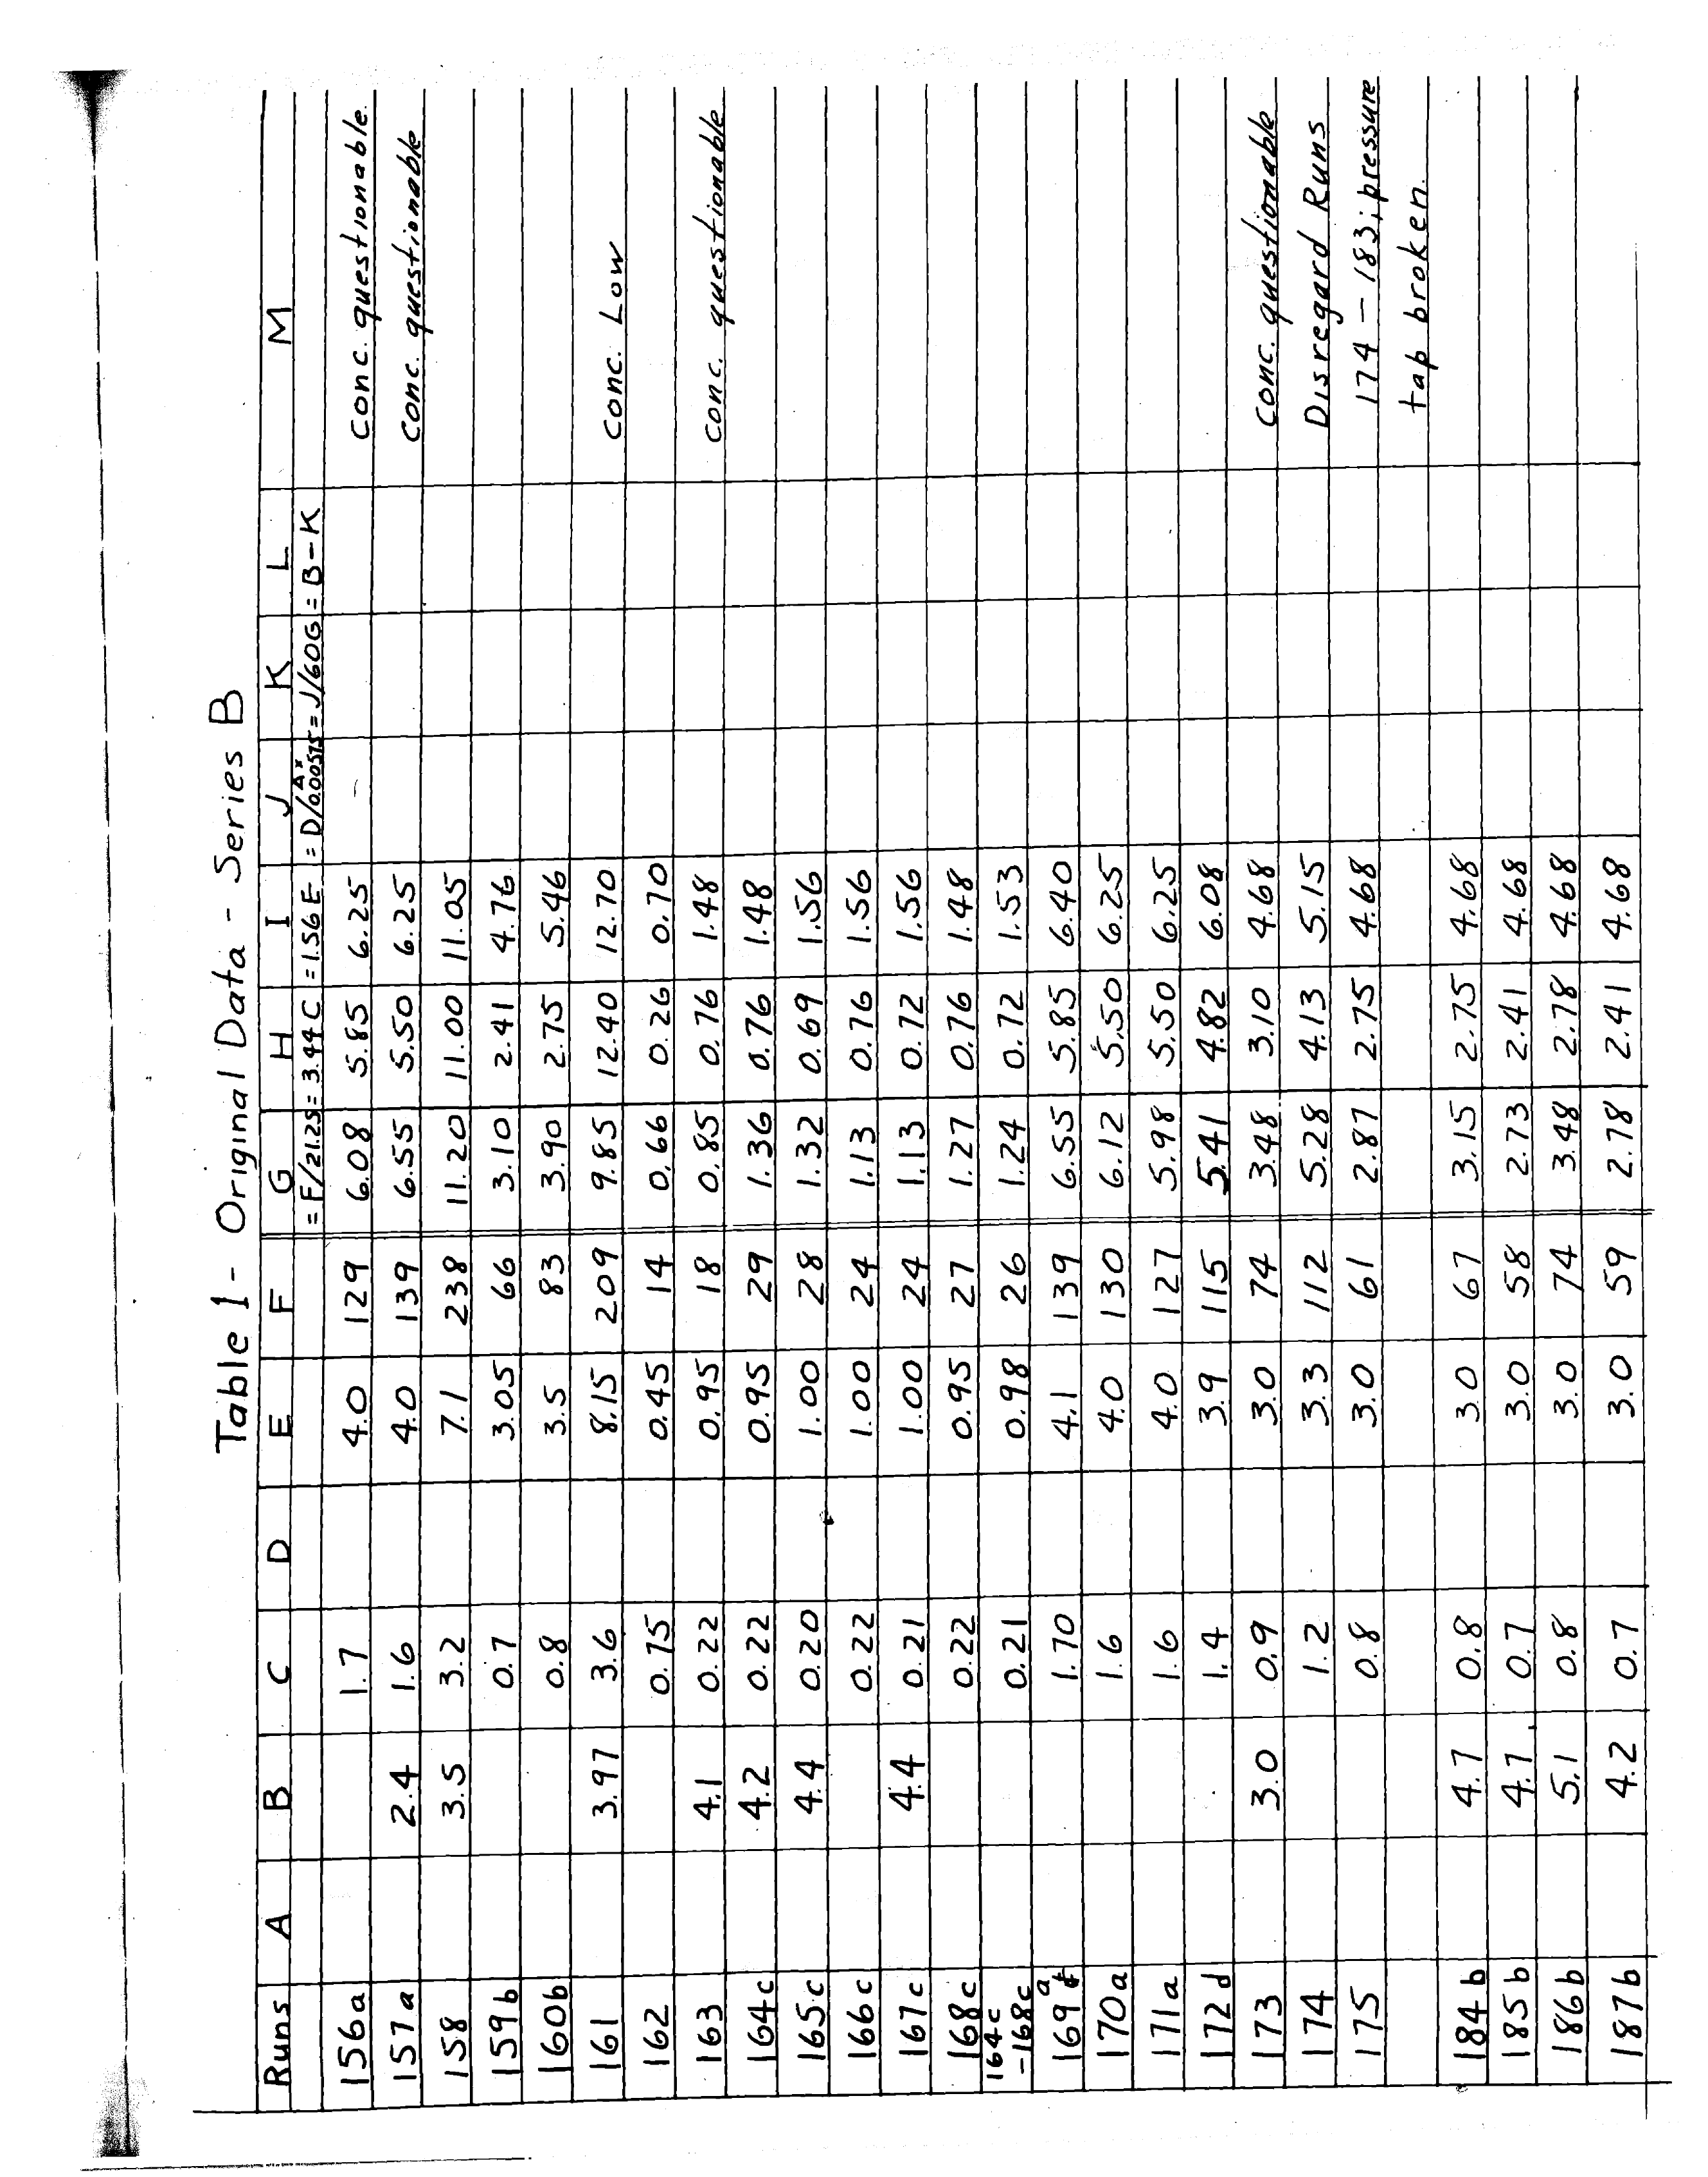 Table 1 - Original Data - Series B
Runs A B C D E F G H I J K L M
= F/21.25 = 3.44 C = 1.56 E = D/0.00575 Δx = J/60G = B-K
156a 1.7 4.0 129 6.08 5.85 6.25 conc. questionable.
157a 2.4 1.6 4.0 139 6.55 5.50 6.25 conc. questionable
158 3.5 3.2 7.1 238 11.20 11.00 11.05
159b 0.7 3.05 66 3.10 2.41 4.76
160b 0.8 3.5 83 3.90 2.75 5.46
161 3.97 3.6 8.15 209 9.85 12.40 12.70 conc. Low
162 0.75 0.45 14 0.66 0.26 0.70
163 4.1 0.22 0.95 18 0.85 0.76 1.48 conc. questionable
164c 4.2 0.22 0.95 29 1.36 0.76 1.48
165c 4.4 0.20 1.00 28 1.32 0.69 1.56
166c 0.22 1.00 24 1.13 0.76 1.56
167c 4.4 0.21 1.00 24 1.13 0.72 1.56
168c 0.22 0.95 27 1.27 0.76 1.48
164c
-168c 0.21 0.98 26 1.24 0.72 1.53
169a 1.70 4.1 139 6.55 5.85 6.40
170a 1.6 4.0 130 6.12 5.50 6.25
171a 1.6 4.0 127 5.98 5.50 6.25
172d 1.4 3.9 115 5.41 4.82 6.08
173 3.0 0.9 3.0 74 3.48 3.10 4.68 conc. questionable
174 1.2 3.3 112 5.28 4.13 5.15 Disregard Runs
175 0.8 3.0 61 2.87 2.75 4.68 174-183; pressure
tap broken.
184b 4.7 0.8 3.0 67 3.15 2.75 4.68
185b 4.7 0.7 3.0 58 2.73 2.41 4.68
186b 5.1 0.8 3.0 74 3.48 2.78 4.68
187b 4.2 0.7 3.0 59 2.78 2.41 4.68